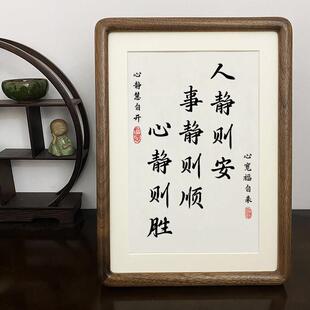 心宽福自来
人静则安
事静则顺
心静则胜
心静慧自开